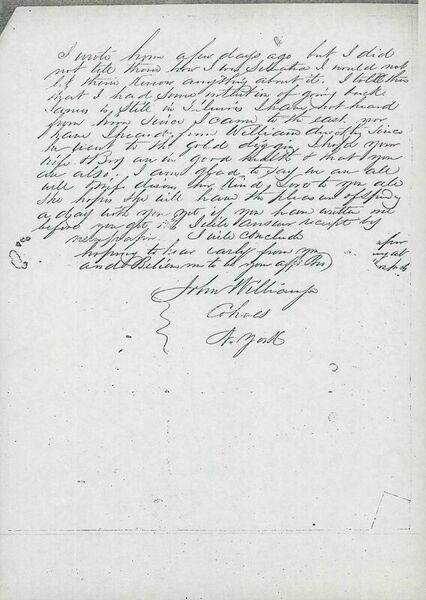 I wrote home a few days ago but I did
not tell them how I was Situated I would not
let them know anything about it. I told them
that I had Some intention of going back
James is Still in St Louis I have not heard
from him Since I came to the east, nor
have I heard from William directly Since
he went to the gold diggings I hope your
wife & Boy are in good health & that you
are also, I am glad to Say we are all
well Give my Kind Love to you all
She hopes She will have the pleasure of Spending
a day with you yet if you have written me
before you get this I will answer receipt by
return. I will Conclude
hoping to hear early from you
and Believe me to be your affe Bro
John Williams
Cohoes
N. York